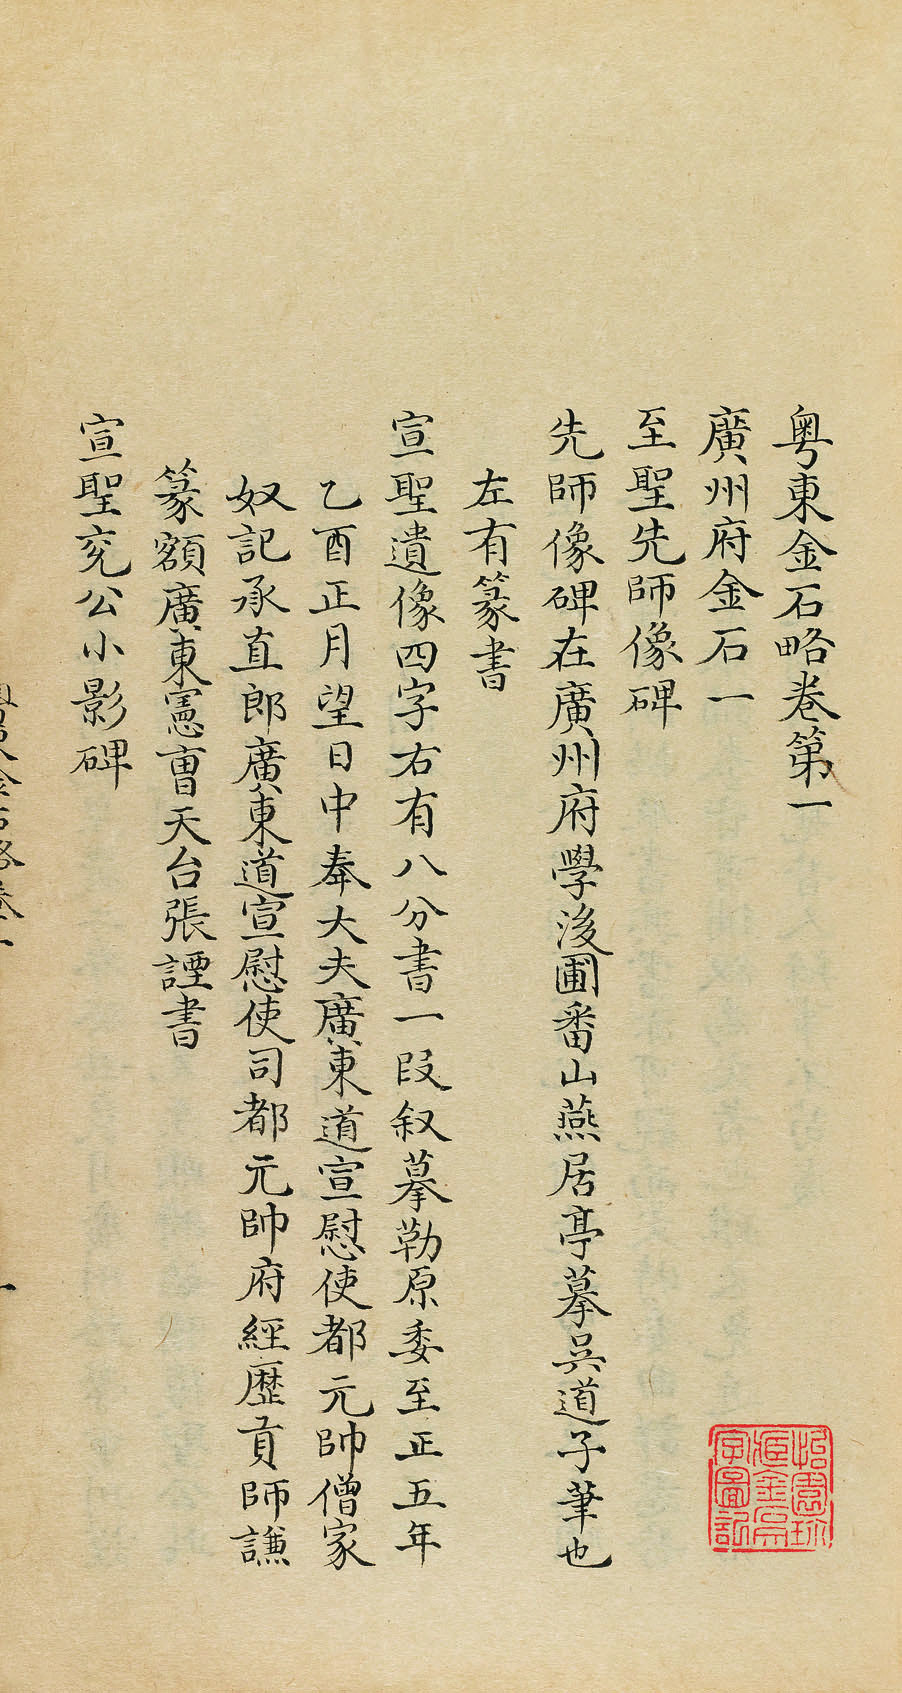 粵東金石略卷第一
廣州府金石一
至聖先師像碑
先師像碑在廣州府學後圃番山燕居亭摹吳道子筆也
左有篆書
宣聖遺像四字右有八分書一段叙摹勒原委至正五年
乙酉正月望日中奉大夫廣東道宣慰使都元帥僧家
奴記承直郎廣東道宣慰使司都元帥府經歷貢師謙
篆額廣東憲曹天台張諲書
宣聖兗公小影碑